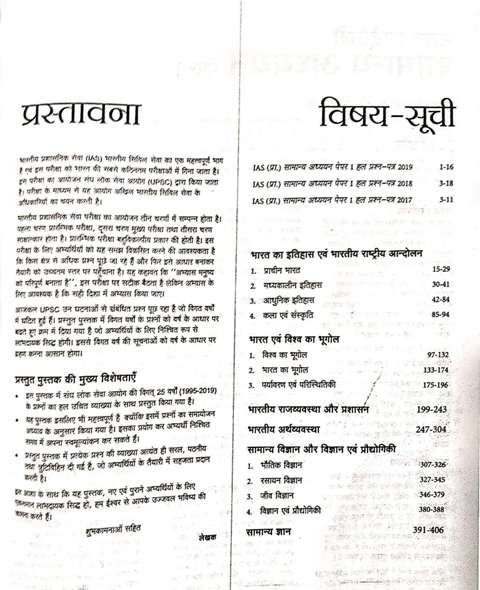 प्रस्तावना
भारतीय प्रशासनिक सेवा (IAS) भारतीय सिविल सेवा का एक महत्वपूर्ण भाग
है एवं इस परीक्षा को विश्व की सबसे कठिनतम परीक्षाओं में गिना जाता है।
इस परीक्षा का आयोजन संघ लोक सेवा आयोग (UPSC) द्वारा किया जाता
है। परीक्षा के माध्यम से यह आयोग अखिल भारतीय सिविल सेवा के
अधिकारियों का चयन करती है।
भारतीय प्रशासनिक सेवा परीक्षा का आयोजन तीन चरणों में सम्पन्न होता है।
पहला चरण प्रारम्भिक परीक्षा, दूसरा चरण मुख्य परीक्षा तथा तीसरा चरण
साक्षात्कार होता है। प्रारम्भिक परीक्षा बहुविकल्पीय प्रकार की होती है। इस
परीक्षा के लिए अभ्यर्थियों को यह समझ विकसित करने की आवश्यकता है
कि किस क्षेत्र से अधिक प्रश्न पूछे जा रहे हैं और फिर इसे आधार बनाकर
तैयारी को उच्चतम स्तर पर पहुँचाना है। यह कहावत कि "अभ्यास मनुष्य
को परिपूर्ण बनाता है", इस परीक्षा पर सटीक बैठता है लेकिन अभ्यास के
लिए आवश्यक है कि सही दिशा में अभ्यास किया जाए।
आजकल UPSC उन घटनाओं से संबंधित प्रश्न पूछ रहा है जो विगत वर्षों
में घटित हुई हैं। प्रस्तुत पुस्तक में विगत वर्षों के प्रश्नों को वर्ष के आधार पर
बढ़ते हुए क्रम में दिया गया है जो अभ्यर्थियों के लिए निश्चित रूप से
लाभदायक सिद्ध होगी। इससे विगत वर्ष की सूचनाओं को वर्ष के आधार पर
ग्रहण करना आसान होगा।
प्रस्तुत पुस्तक की मुख्य विशेषताएँ
• इस पुस्तक में संघ लोक सेवा आयोग की विगत् 25 वर्षों (1995-2019)
के प्रश्नों का हल उचित व्याख्या के साथ प्रस्तुत किया गया है।
• यह पुस्तक इसलिए भी महत्वपूर्ण है क्योंकि इसमें प्रश्नों का समायोजन
अध्याय के अनुसार किया गया है। इसका प्रयोग कर अभ्यर्थी निश्चित
समय में अपना स्वमूल्यांकन कर सकते हैं।
• प्रस्तुत पुस्तक में प्रत्येक प्रश्न की व्याख्या अत्यंत ही सरल, पठनीय
तथा त्रुटिविहिन दी गई है, जो अभ्यर्थियों के तैयारी में सहजता प्रदान
करती है।
इस आशा के साथ कि यह पुस्तक, नए एवं पुराने अभ्यर्थियों के लिए
लाभदायक सिद्ध हो, हम ईश्वर से आपके उज्जवल भविष्य की
करते हैं।
शुभकामनाओं सहित
लेखक
विषय-सूची
IAS (प्रा.) सामान्य अध्ययन पेपर 1 हल प्रश्न-पत्र 2019 1-16
IAS (प्रा.) सामान्य अध्ययन पेपर 1 हल प्रश्न-पत्र 2018 3-18
IAS (प्रा.) सामान्य अध्ययन पेपर 1 हल प्रश्न-पत्र 2017 3-11
भारत का इतिहास एवं भारतीय राष्ट्रीय आन्दोलन
1. प्राचीन भारत 15-29
2. मध्यकालीन इतिहास 30-41
3. आधुनिक इतिहास 42-84
4. कला एवं संस्कृति 85-94
भारत एवं विश्व का भूगोल
1. विश्व का भूगोल 97-132
2. भारत का भूगोल 133-174
3. पर्यावरण एवं परिस्थितिकी 175-196
भारतीय राजव्यवस्था और प्रशासन 199-243
भारतीय अर्थव्यवस्था 247-304
सामान्य विज्ञान और विज्ञान एवं प्रौद्योगिकी
1. भौतिक विज्ञान 307-326
2. रसायन विज्ञान 327-345
3. जीव विज्ञान 346-379
4. विज्ञान एवं प्रौद्योगिकी 380-388
सामान्य ज्ञान 391-406